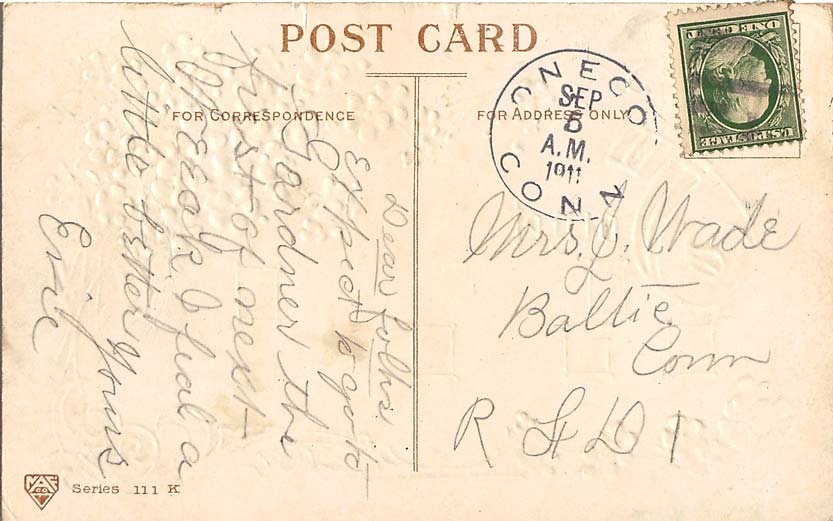 POST CARD
FOR CORRESPONDENCE
FOR ADDRESS ONLY
ONECO
SEP
5
A.M.
1911
CONN
ONE CENT
U.S. POSTAGE
Dear folks
Expect to go to
Gardner the
first of next
Week I feel a
little better
Yours
Evie
Mrs. J. Wade
Baltic
Conn
R F D 1
Series 111 K